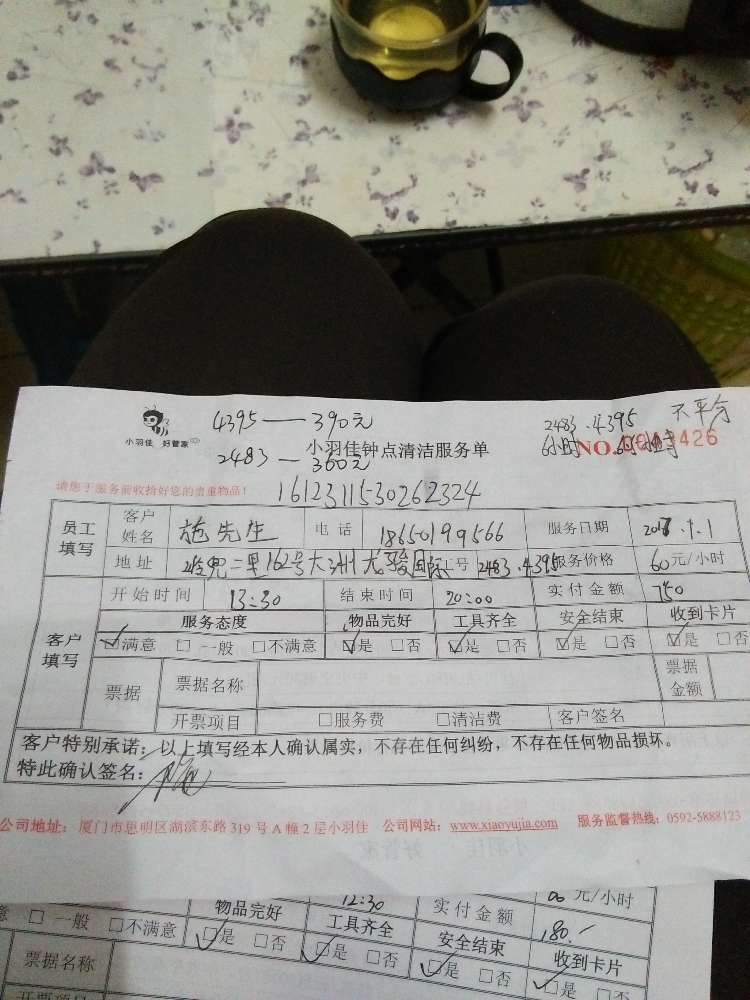 4395——390元
2483.4395 不平分
小羽佳 好管家
小羽佳钟点清洁服务单
2483—360元
6小时
NO.
426
请您于服务前收拾好您的贵重物品!
1612311530262324
员工填写 客户姓名 施先生 电话 18650199566 服务日期 2017.1.1
地址 二里162号大洲龙骏国际 工号 2483.4395 服务价格 60元/小时
客户填写 开始时间 13:30 结束时间 20:00 实付金额 750
服务态度 物品完好 工具齐全 安全结束 收到卡片
☑满意 □一般 □不满意 ☑是 □否 ☑是 □否 ☑是 □否 ☑是 □否
票据 票据名称 票据金额
开票项目 □服务费 □清洁费 客户签名
客户特别承诺:以上填写经本人确认属实,不存在任何纠纷,不存在任何物品损坏。
特此确认签名:
公司地址:厦门市思明区湖滨东路319号A幢2层小羽佳 公司网站:www.xiaoyujia.com 服务监督热线:0592-5888123
12:30 实付金额 元/小时
180.-
□一般 □不满意 物品完好 工具齐全 安全结束 收到卡片
☑是 □否 ☑是 □否 ☑是 □否 ☑是 □否
票据名称
开票项目